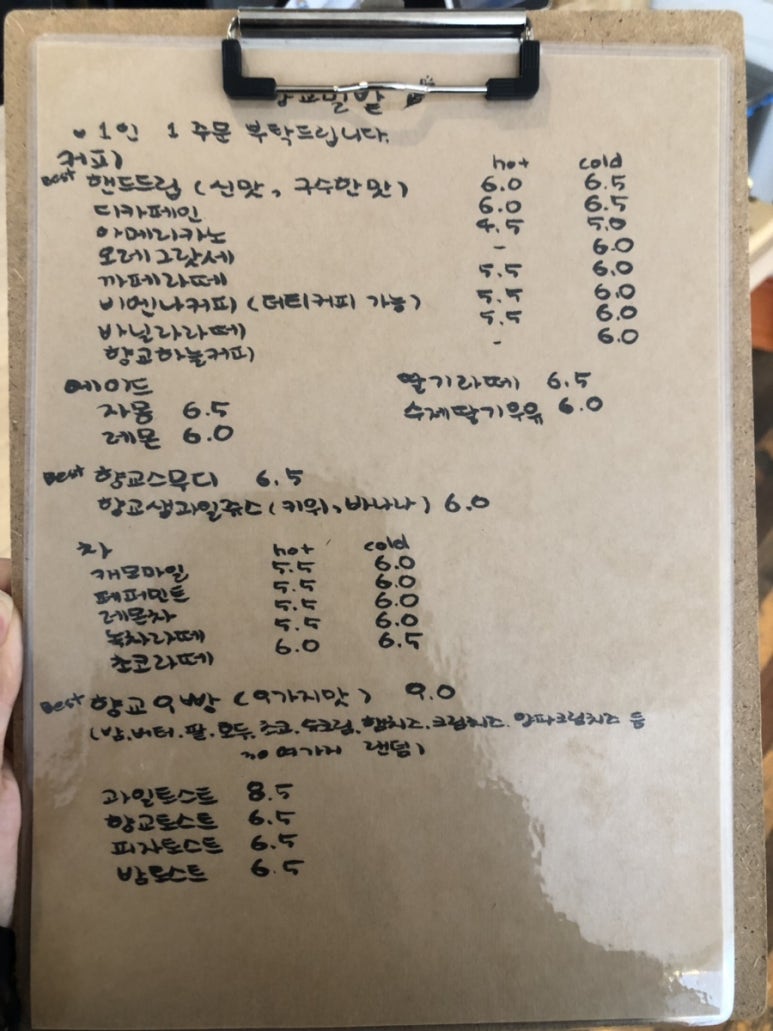 향교밀밭
1인 1주문 부탁드립니다.
커피 hot cold
Best 핸드드립 (신맛, 구수한맛) 6.0 6.5
디카페인 6.0 6.5
아메리카노 4.5 5.0
오레그랏세 - 6.0
까페라떼 5.5 6.0
비엔나커피 (더티커피 가능) 5.5 6.0
바닐라라떼 5.5 6.0
향교하늘커피 - 6.0
에이드
자몽 6.5
레몬 6.0
딸기라떼 6.5
수제딸기우유 6.0
Best 향교스무디 6.5
향교생과일쥬스 (키위, 바나나) 6.0
차 hot cold
캐모마일 5.5 6.0
페퍼민트 5.5 6.0
레몬차 5.5 6.0
녹차라떼 5.5 6.0
초코라떼 6.0 6.5
Best 향교9빵 (9가지맛) 9.0
(밤, 버터, 팥, 호두, 초코, 슈크림, 햄치즈, 크림치즈, 양파크림치즈 등
30여가지 랜덤)
과일토스트 8.5
향교토스트 6.5
피자토스트 6.5
밤토스트 6.5